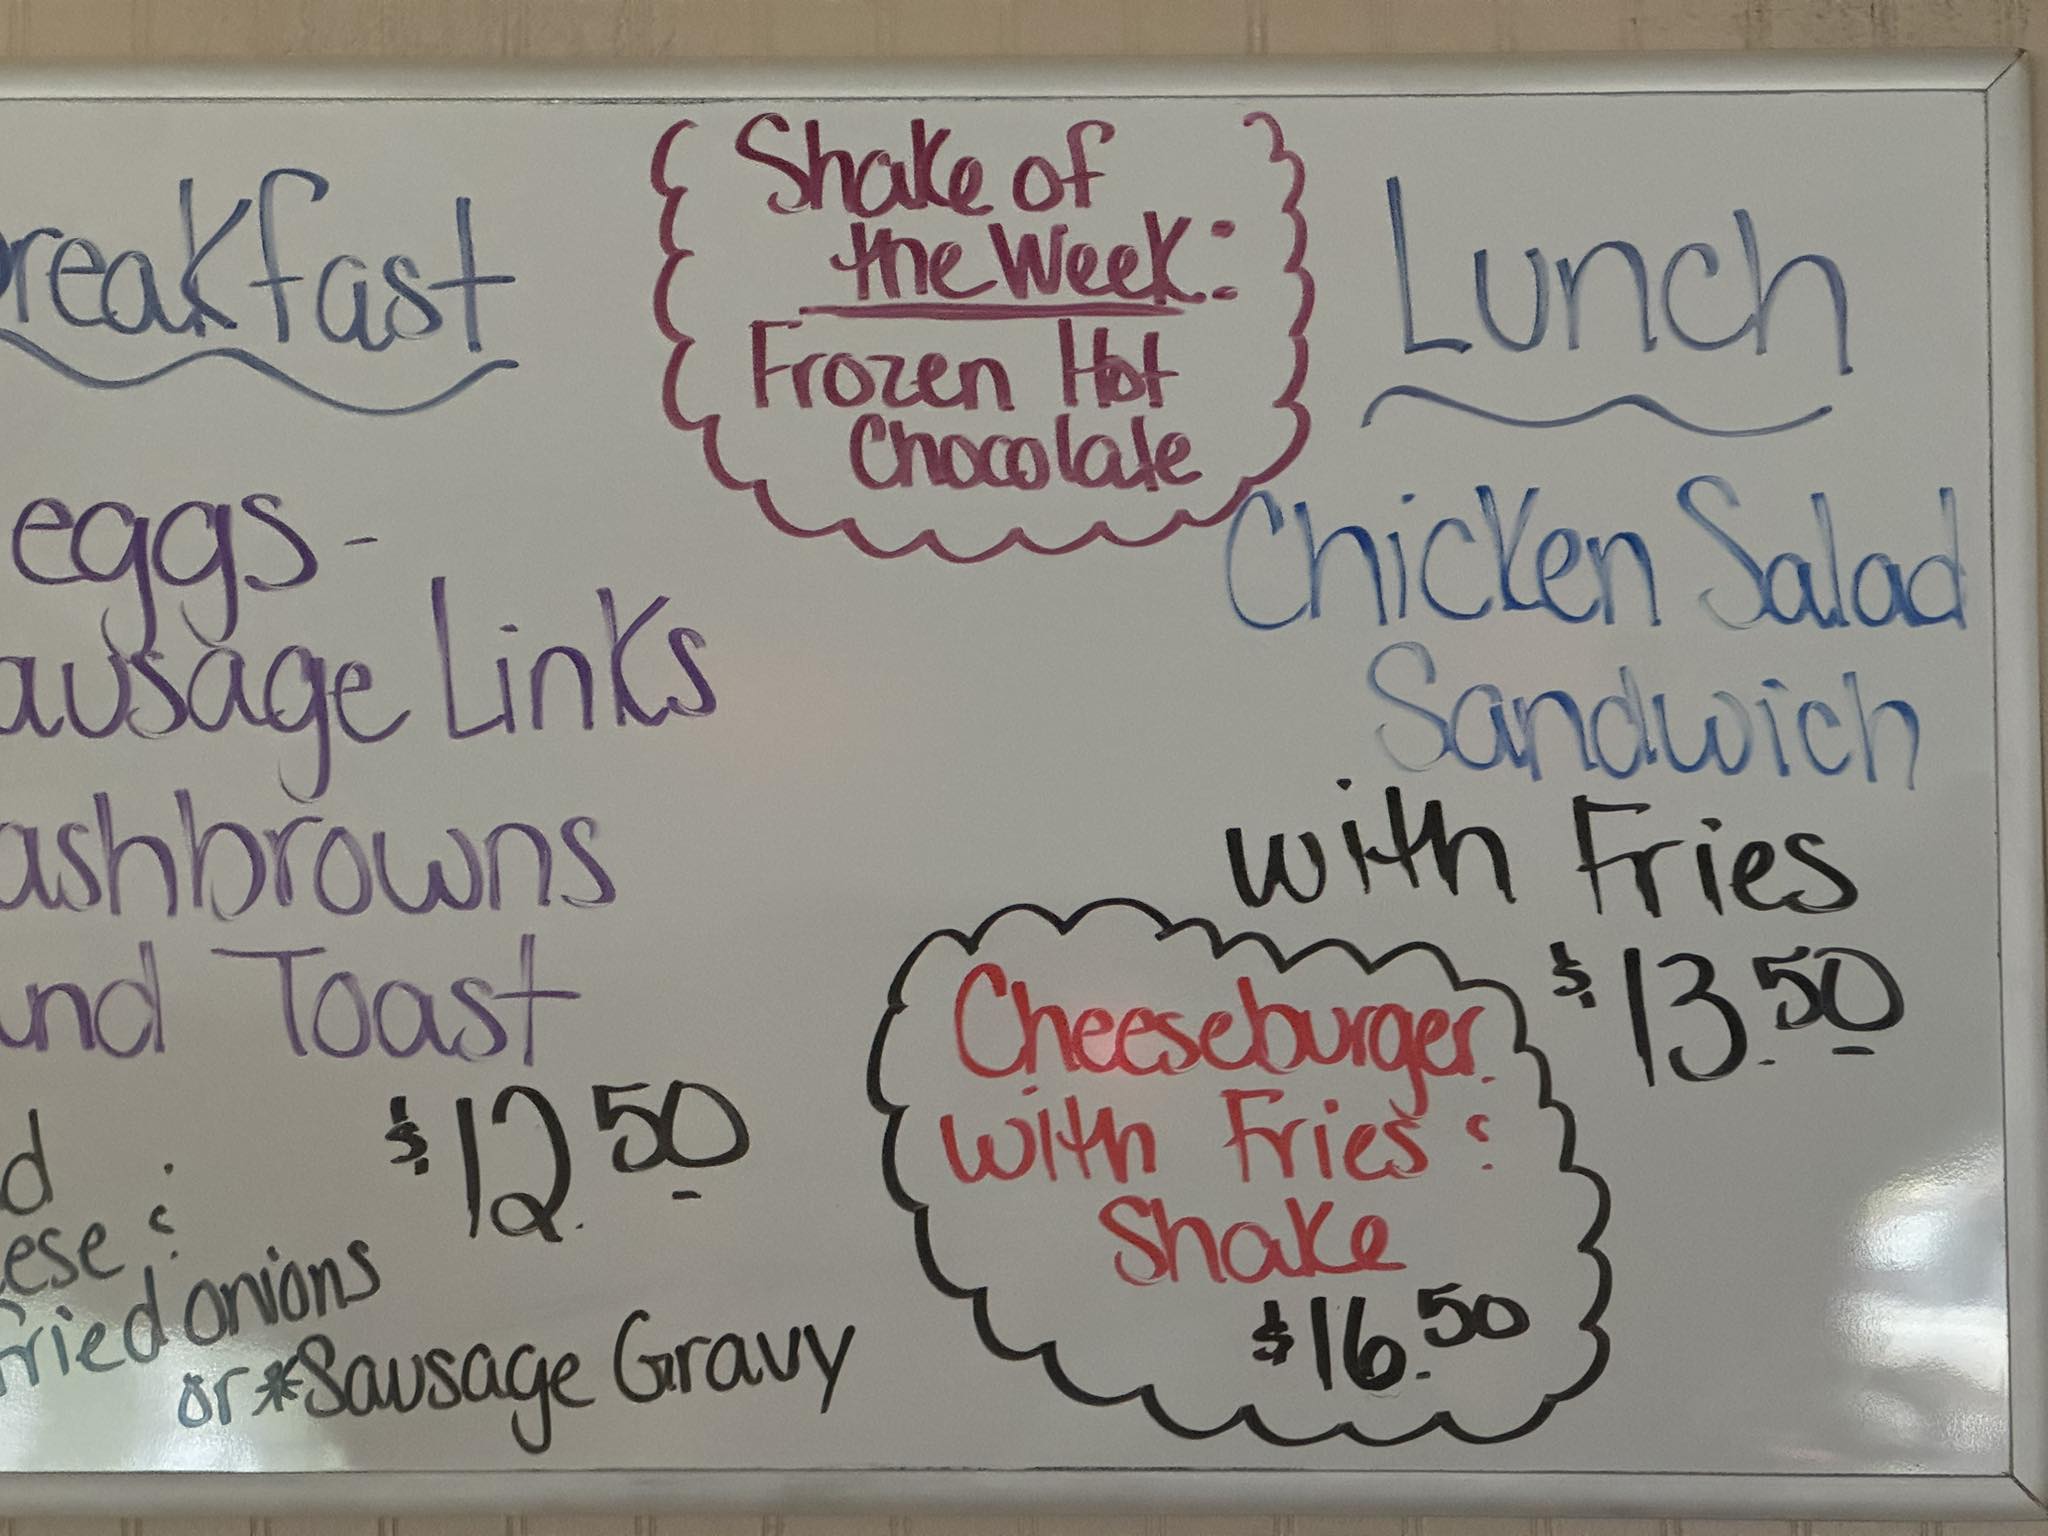 reakfast
eggs-
ausage Links
ashbrowns
nd Toast
$12.50
d
ese &
fried onions
or *Sausage Gravy
Shake of
the Week:
Frozen Hot
Chocolate
Lunch
Chicken Salad
Sandwich
with Fries
$13.50
Cheeseburger
with Fries &
Shake
$16.50